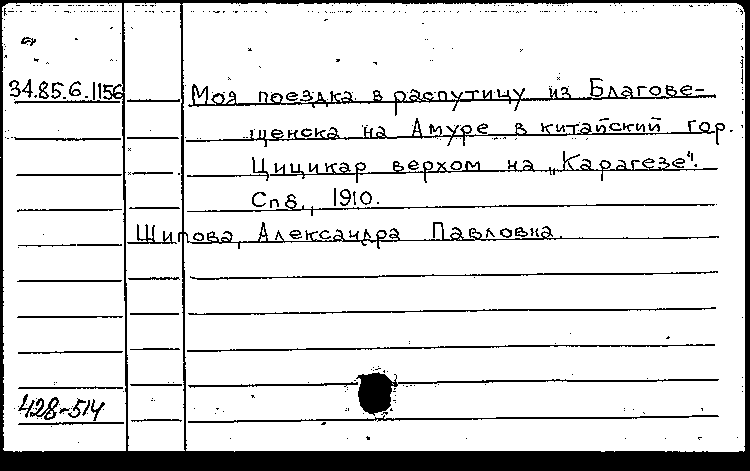 34.85.6.1156 Моя поездка в распутицу из Благове-
щенска на Амуре в китайский гор.
Цицикар верхом на „Карагезе".
Спб., 1910.
Шипова, Александра Павловна.
428-514